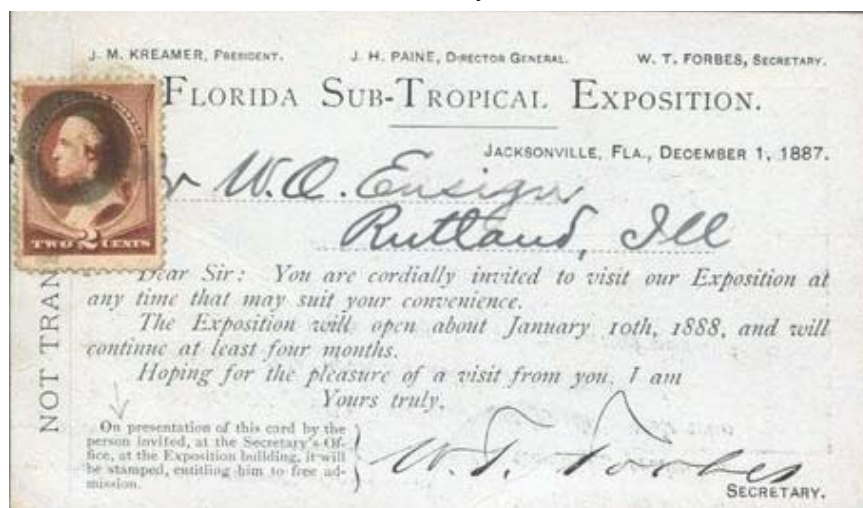 J. M. KREAMER, PRESIDENT. J. H. PAINE, DIRECTOR GENERAL. W. T. FORBES, SECRETARY.
FLORIDA SUB-TROPICAL EXPOSITION.
JACKSONVILLE, FLA., DECEMBER 1, 1887.
W. O. Ensign
Rutland, Ill
TWO 2 CENTS
Dear Sir: You are cordially invited to visit our Exposition at
any time that may suit your convenience.
The Exposition will open about January 10th, 1888, and will
continue at least four months.
Hoping for the pleasure of a visit from you, I am
Yours truly,
NOT TRAN
On presentation of this card by the
person invited, at the Secretary's Of-
fice, at the Exposition building, it will
be stamped, entitling him to free ad-
mission.
W. T. Forbes
SECRETARY.